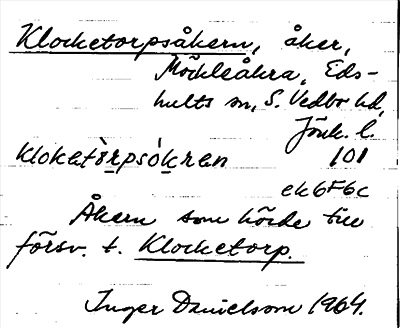 Klocketorpsåkern, åker,
Mörkleåkra, Eds-
hults sn, S. Vedbo hd,
Jönk. l.
klokatòr̲psòk̲ran 101
ek6F6c
Åkern som hörde till
försv. t. Klocketorp.
Inger Danielsom 1964.